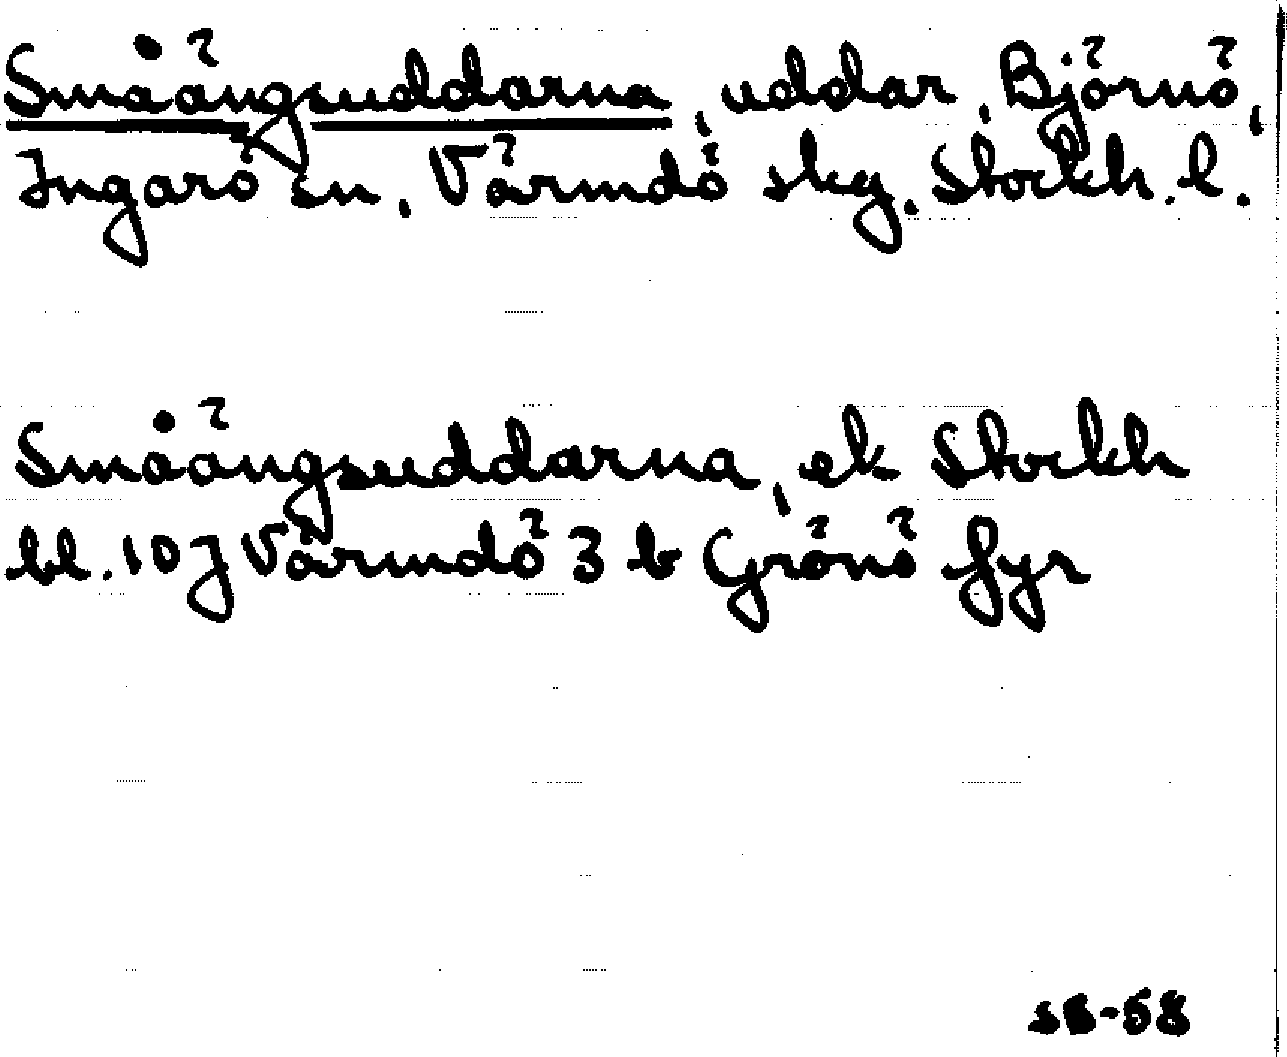 Småängsuddarna, uddar, Björnö,
Ingarö sn, Värmdö skg. Stockh. l.
Småängsuddarna, ek Stockh
bl. 10J Värmdö 3 b Grönö fyr
58-58